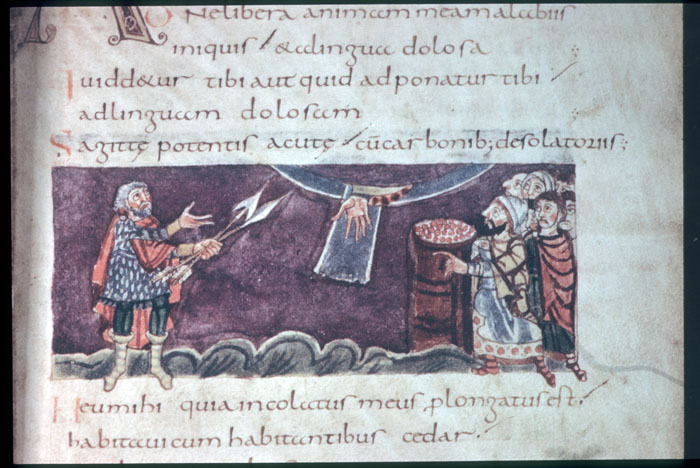 Dne libera animam meam alabiis
iniquis & alingua dolosa
Quidd&ur tibi aut quid adponatur tibi
adlinguam dolosam
Sagittę potentis acutę cūcarbonib; desolatoriis;
Heumihi quia incolatus meus plongatus est.
habitaui cum habitantibus cedar.